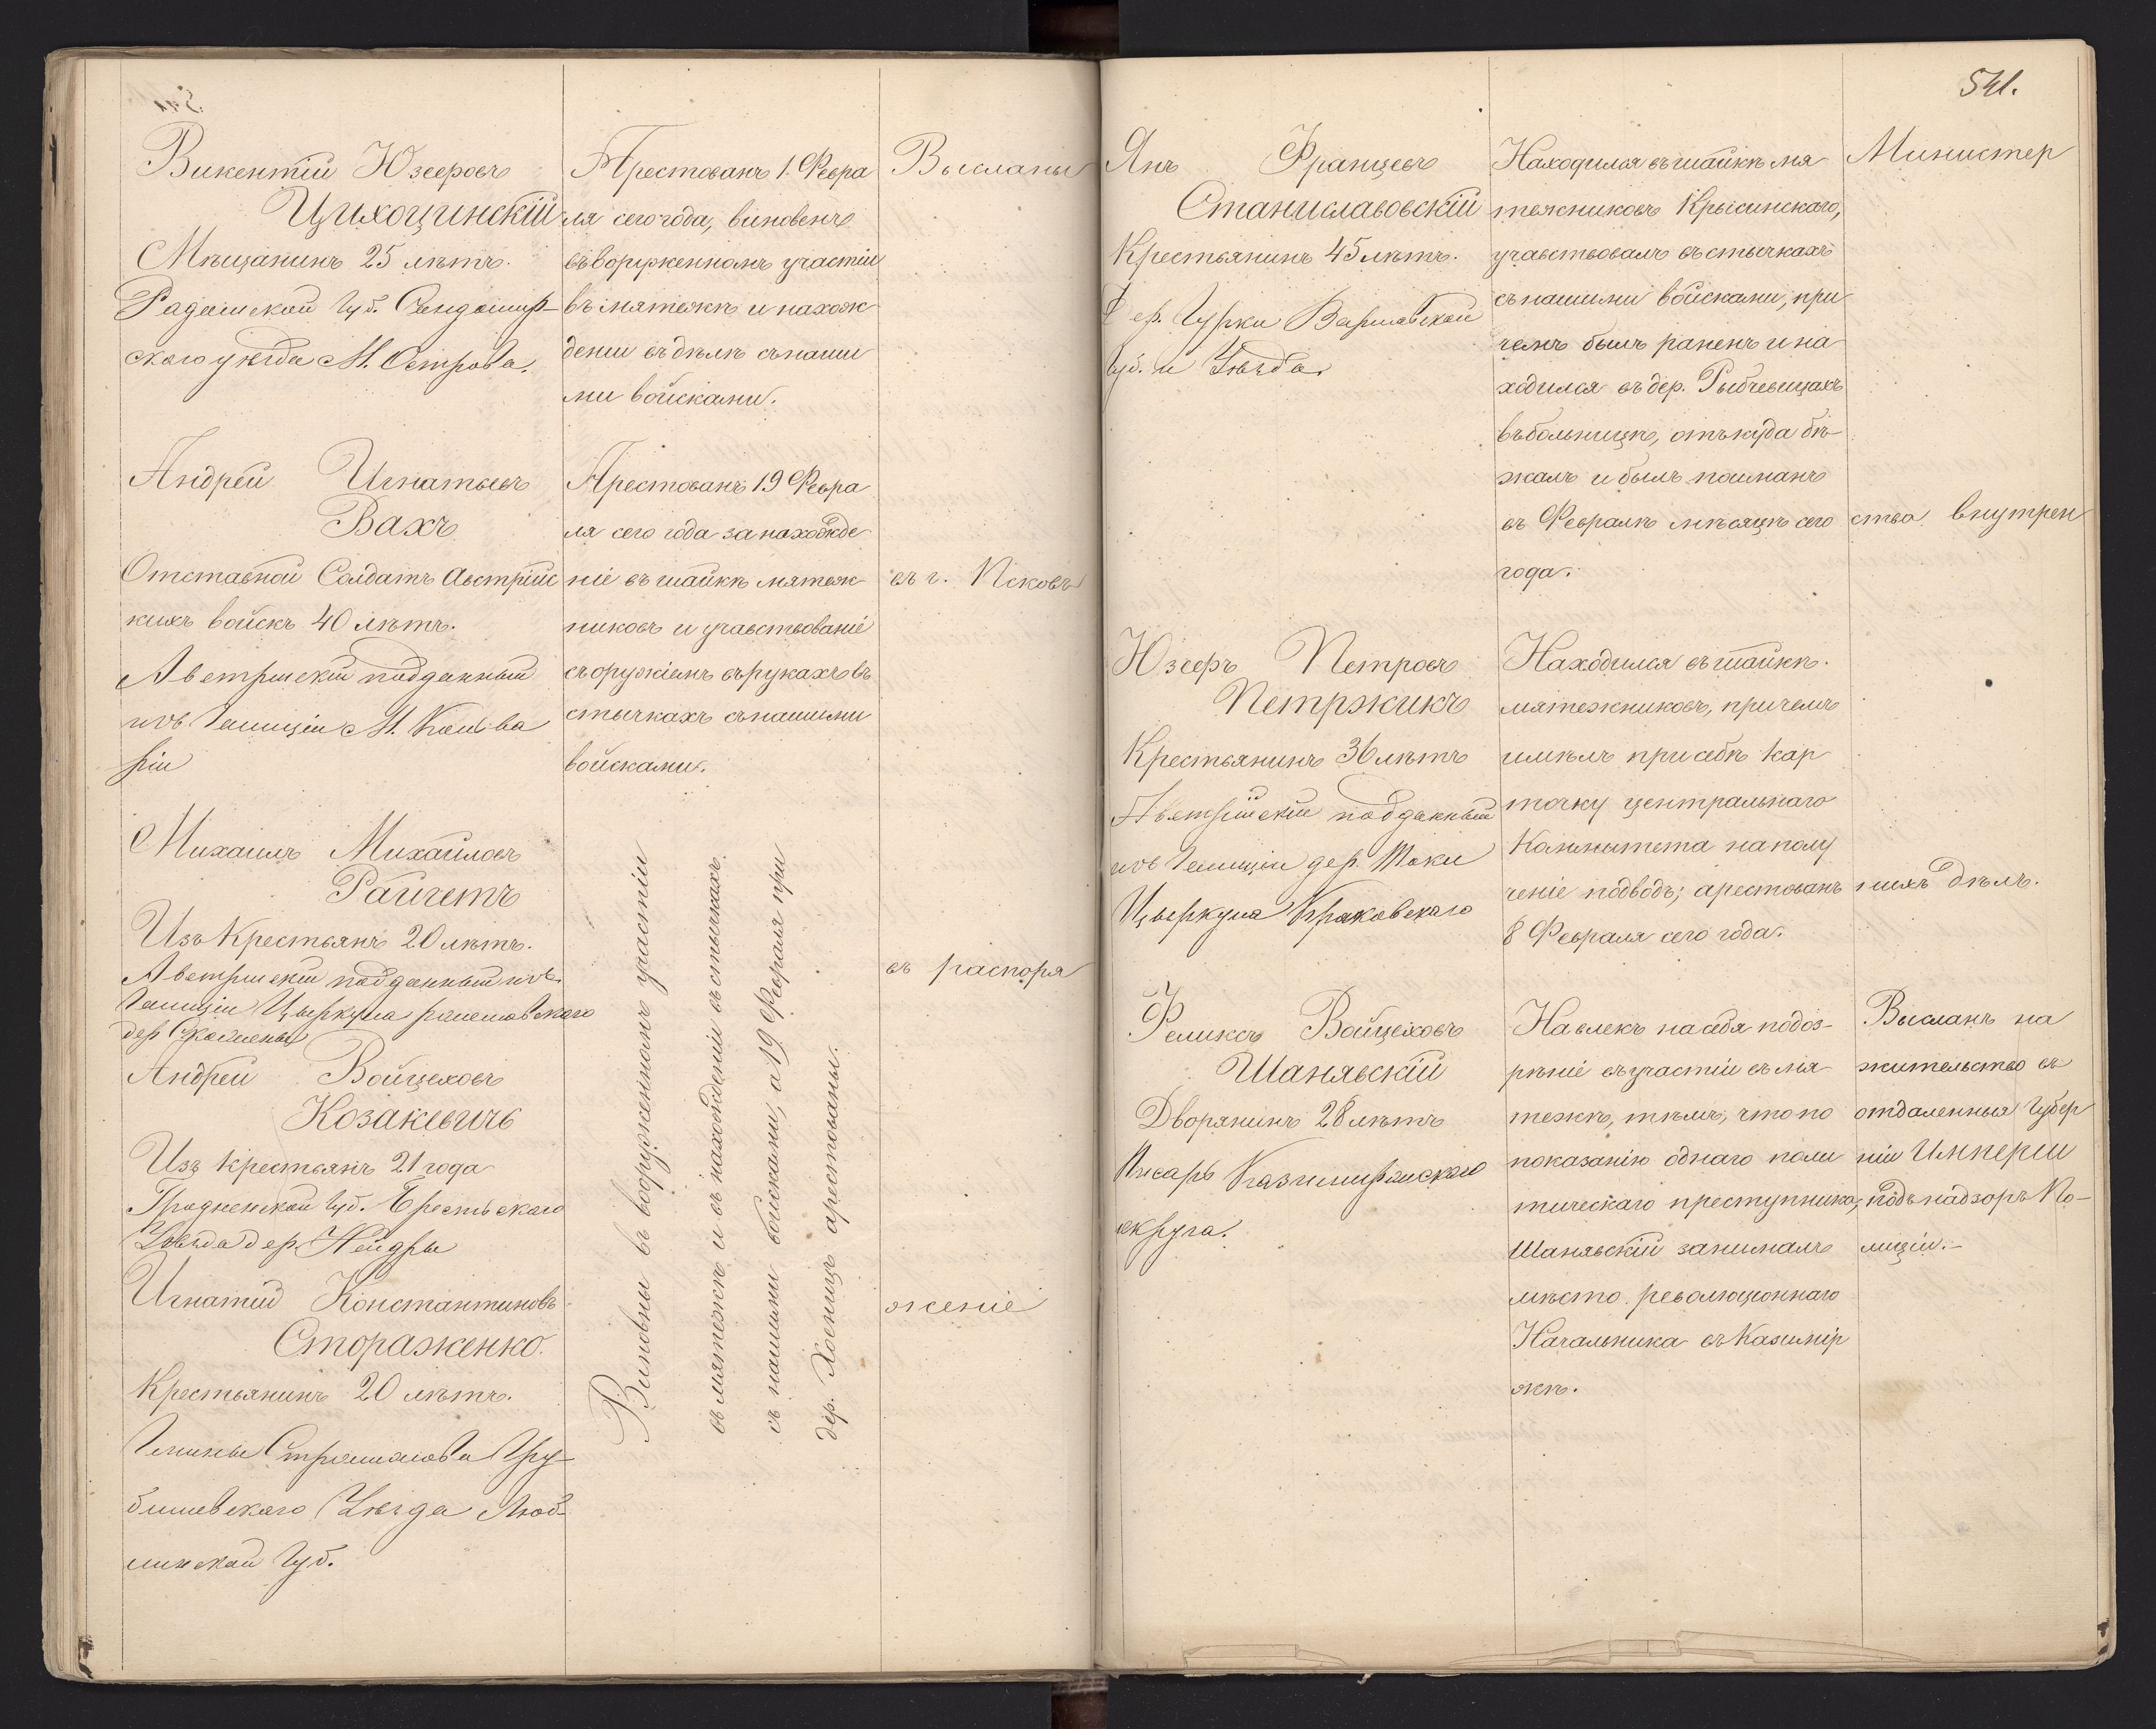 Викентій Юзефовъ
Цихоцинскій
Мѣщанинъ 25 лѣтъ.
Радомской Губ. Сандомир-
скаго уѣзда М. Островa.
Андрей Игнатьевъ
Вахъ
Отставной Солдатъ Австрійс
кихъ войскъ 40 лѣтъ.
Австрійскій подданный
изъ Галиціи М. Кальва
ріи
Михаилъ Михайловъ
Райчетъ
Изъ Крестьянъ 20 лѣтъ.
Австрійскій подданный изъ
Галиціи Циркула
дер.
Андрей Войцеховъ
Козакевичъ
Изъ Крестьянъ 21 года
Гродненской Губ. Брестскаго
Уѣзда дер.
Игнатій Константиновъ
Стораженко.
Крестьянинъ 20 лѣтъ.
Гмины Гру-
бешевскаго Уѣзда Люб-
линской Губ.
Арестованъ 1 Февра
ля сего года, виновенъ
въ воруженномъ участіи
въ мятежѣ и нахож
деніи въ дѣлѣ съ наши
ми войсками.
Арестованъ 19 Февра
ля сего года за нахожде
ніе въ шайкѣ мятеж
никовъ и учавствованіе
съ оружіемъ въ рукахъ въ
стычкахъ съ нашими
войсками.
Виновны въ вооруженномъ участіи
въ мятежѣ и въ нахожденіи въ стычкахъ
съ нашими войсками, а 19 Февраля при
дер. Хоениц арестованы.
Высланы
въ г. Псковъ
въ распоря
женіе
541.
Янъ Францевъ
Станиславовскій
Крестьянинъ 45 лѣтъ.
Дер. Гурки Варшавской
Губ. и Уѣзда.
Юзефъ Петровъ
Петржикъ
Крестьянинъ 36 лѣтъ
Австрійскій подданный
изъ Галиціи дер. Токи
Циркула Краковскаго
Феликсъ Войцеховъ
Шанявскій
Дворянинъ 28 лѣтъ
Писарь Казимиржскаго
округа.
Находился въ шайкѣ мя
тежниковъ Крысинскаго,
учавствовалъ въ стычкахъ
съ нашими войсками, при
чемъ былъ раненъ и на
ходился въ дер. Рыбчевицахъ
въ больницѣ, откуда бѣ-
жалъ и былъ пойманъ
въ Февралѣ мѣсяцѣ сего
года.
Находился въ шайкѣ
мятежниковъ, причемъ
имѣлъ при себѣ кар
точку центральнаго
Коммитета на полу
ченіе подводъ; арестованъ
8 Февраля сего года.
Навлекъ на себя подоз-
рѣніе въ участіи въ мя-
тежѣ, тѣмъ, что по
показанію однаго поли
тическаго преступника,
Шанявскій занималъ
мѣсто революціоннаго
Начальника въ Казимір
жѣ.
Министер
ства внутрен
нихъ дѣлъ.
Высланъ на
жительство въ
отдаленныя Губер
ніи Имперіи
подъ надзоръ По-
лиціи.-